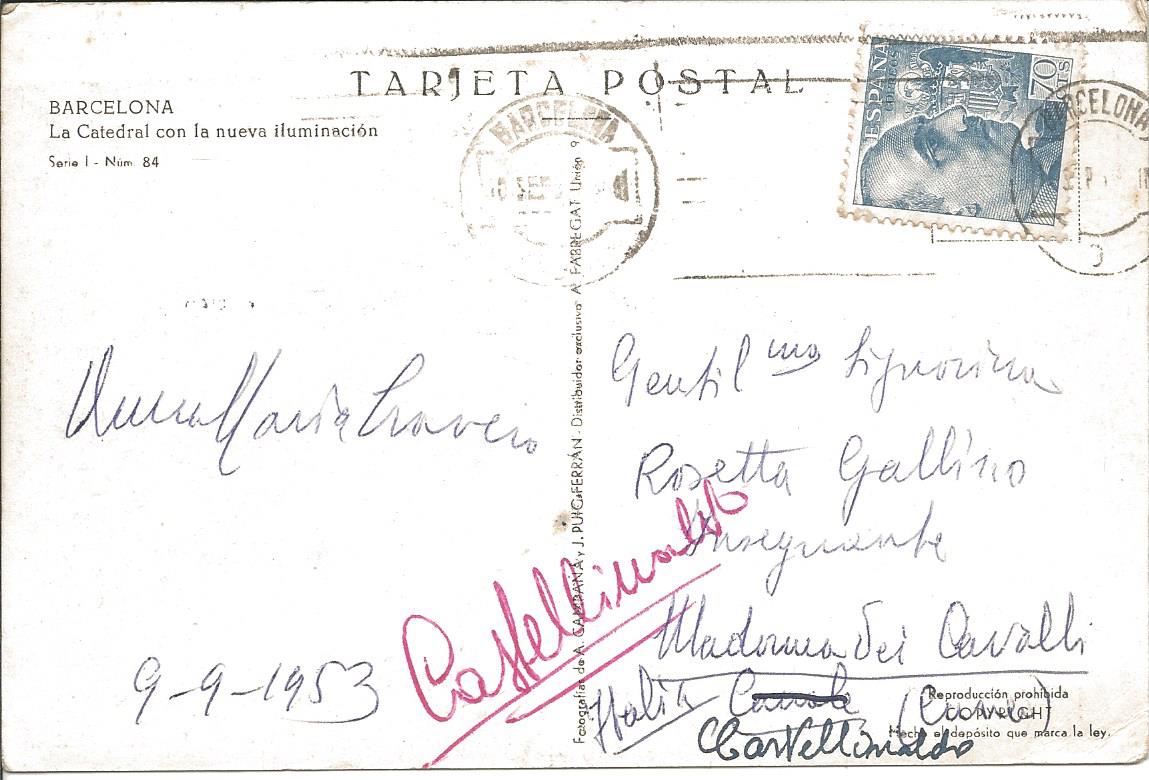 TARJETA POSTAL
BARCELONA
La Catedral con la nueva iluminación
Serie I - Núm. 84
BARCELONA
ESPAÑA
CORREOS
70 CTS
BARCELONA
Fotografías de A. CAMPAÑA y J. PUIG FERRÁN - Distribuidor exclusivo A. FABREGAT Unión 9
Anna Maria
9-9-1953
Gentil ma Signorina
Rosetta Gallino
Insegnante
Madonna dei Cavalli
Italia (Cuneo)
Castellinaldo
Castellinaldo
Reproducción prohibida
COPYRIGHT
Hecho el depósito que marca la ley.